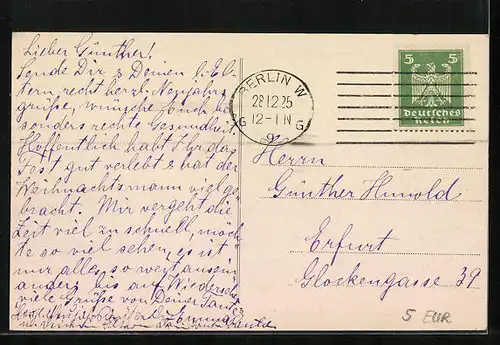 Lieber Günther!
Sende Dir & Deinen l. El-
tern, recht herzl. Neujahrs
grüße, wünsche Euch be
sonders rechte Gesundheit.
Hoffentlich habt Ihr das
Fest gut verlebt & hat der
Weihnachtsmann viel ge
bracht. Mir vergeht die
Zeit viel zu schnell, möch
te so viel sehen, es ist
nur alles so weit ausein
ander, bis auf Wiedersehn
viele Grüße von Deiner Tante
BERLIN W
28.12.25
12-1 N
G G
9
5 5
Deutsches
Reich
Herrn
Günther Hunold
Erfurt
Glockengasse 39
5 EUR